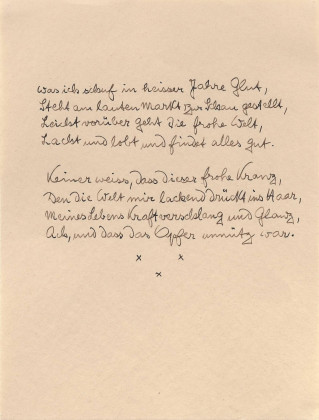 Was ich schuf in heisser Jahre Glut,
Steht am lauten Markt zur Schau gestellt,
Leicht vorüber geht die frohe Welt,
Lacht und lobt und findet alles gut.
Keiner weiss, dass dieser frohe Kranz,
Den die Welt mir lachend drückt ins Haar,
Meines Lebens Kraft verschlang und Glanz,
Ach, und dass das Opfer unnütz war.
x x
x